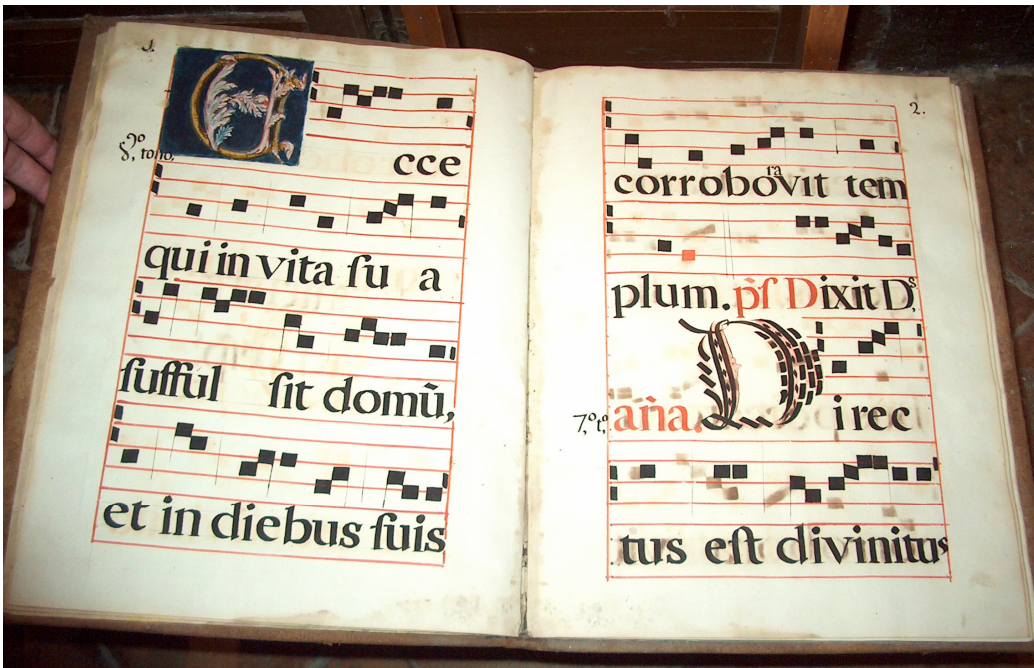 1.
Ecce
8,º tono.
qui in vita ſu a
ſufful ſit domũ,
et in diebus ſuis
2.
ra
corrobovit tem
plum. p̃ſ Dixit Dˢ,
7,º tº, añа. Direc
tus eſt divinitus